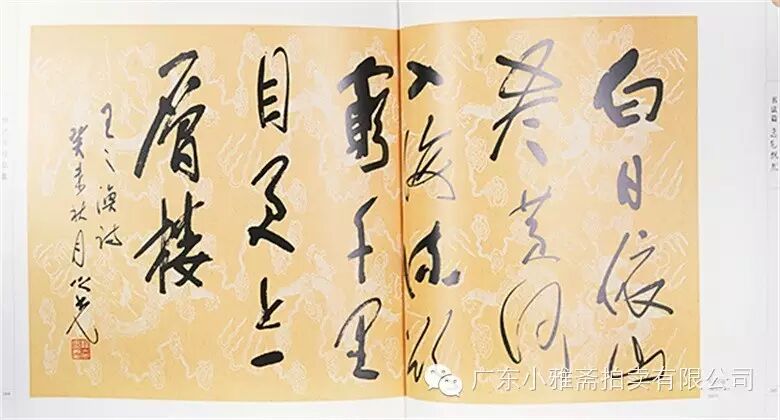 白日依山
尽黄河
入海流欲
窮千里
目更上一
層楼
王之涣诗
癸未秋月
书法篇
广东小雅斋拍卖有限公司